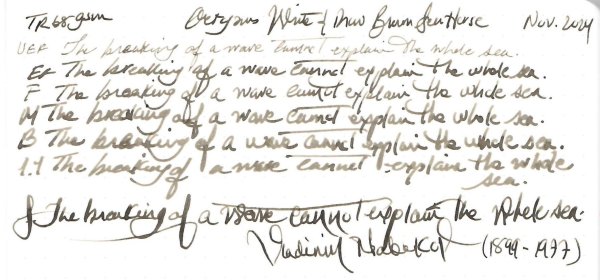 TR68gsm Octopus Write & Draw Brown Sea Horse Nov. 2024
UEF The breaking of a wave cannot explain the whole sea.
EF The breaking of a wave cannot explain the whole sea.
F The breaking of a wave cannot explain the whole sea.
M The breaking of a wave cannot explain the whole sea.
B The breaking of a wave cannot explain the whole sea.
1.1 The breaking of a wave cannot explain the whole
sea.
The breaking of a wave cannot explain the whole sea.
Vladimir Nabokov (1899-1977)